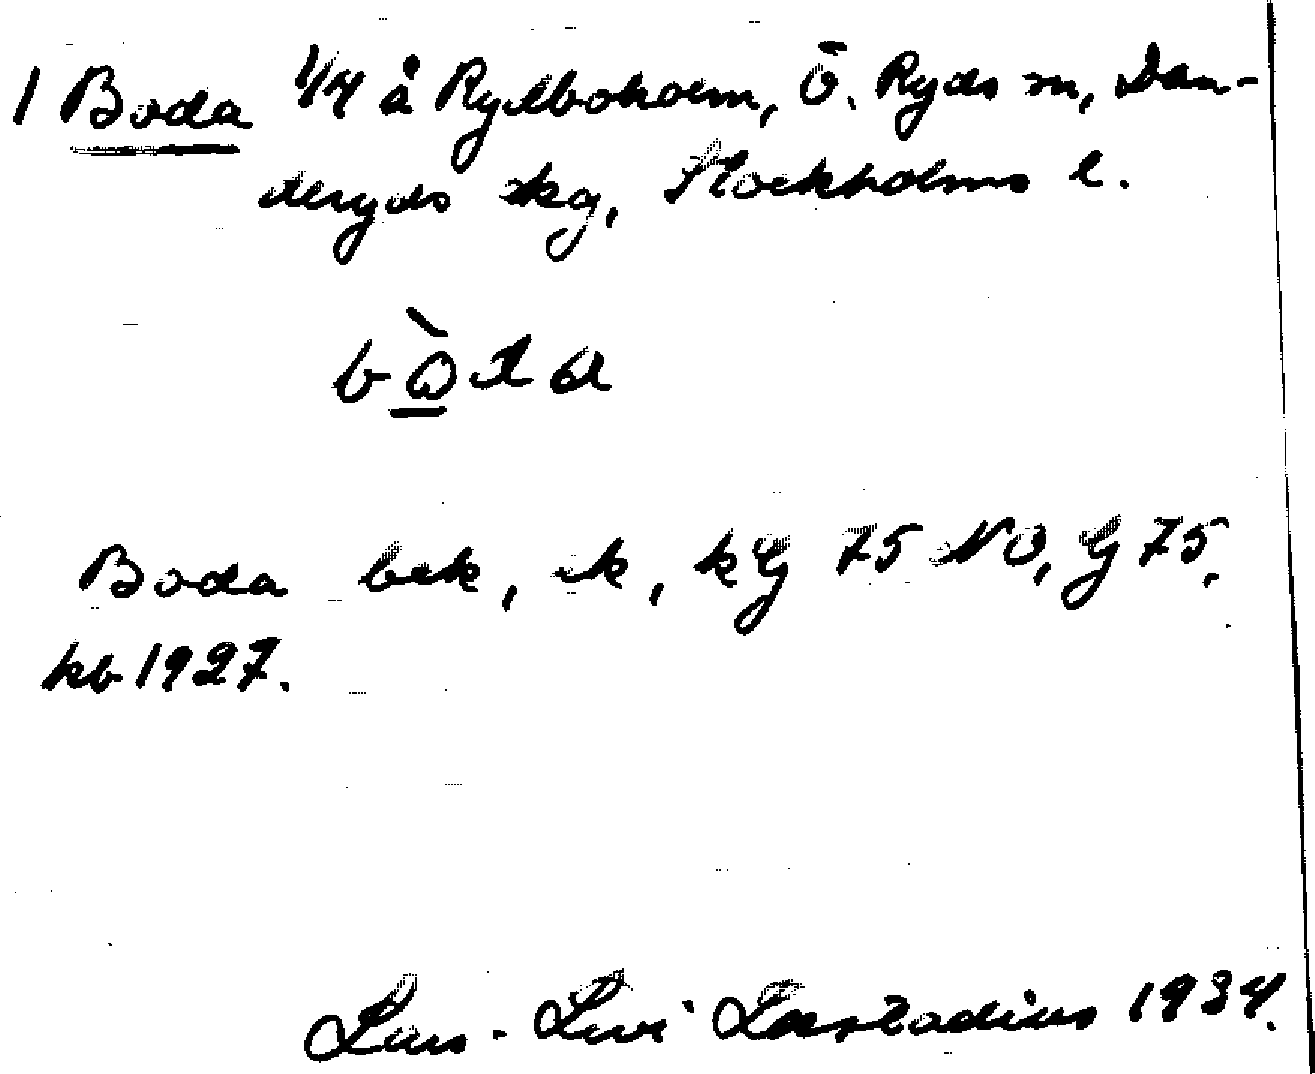 1 Boda 1/4 å Rydboholm, Ö. Ryds sn, Dan-
deryds skg, Stockholms l.
bòda
Boda bek, ek, kG 75 NO, G 75,
kb 1927.
Lars-Levi Læstadius 1934.